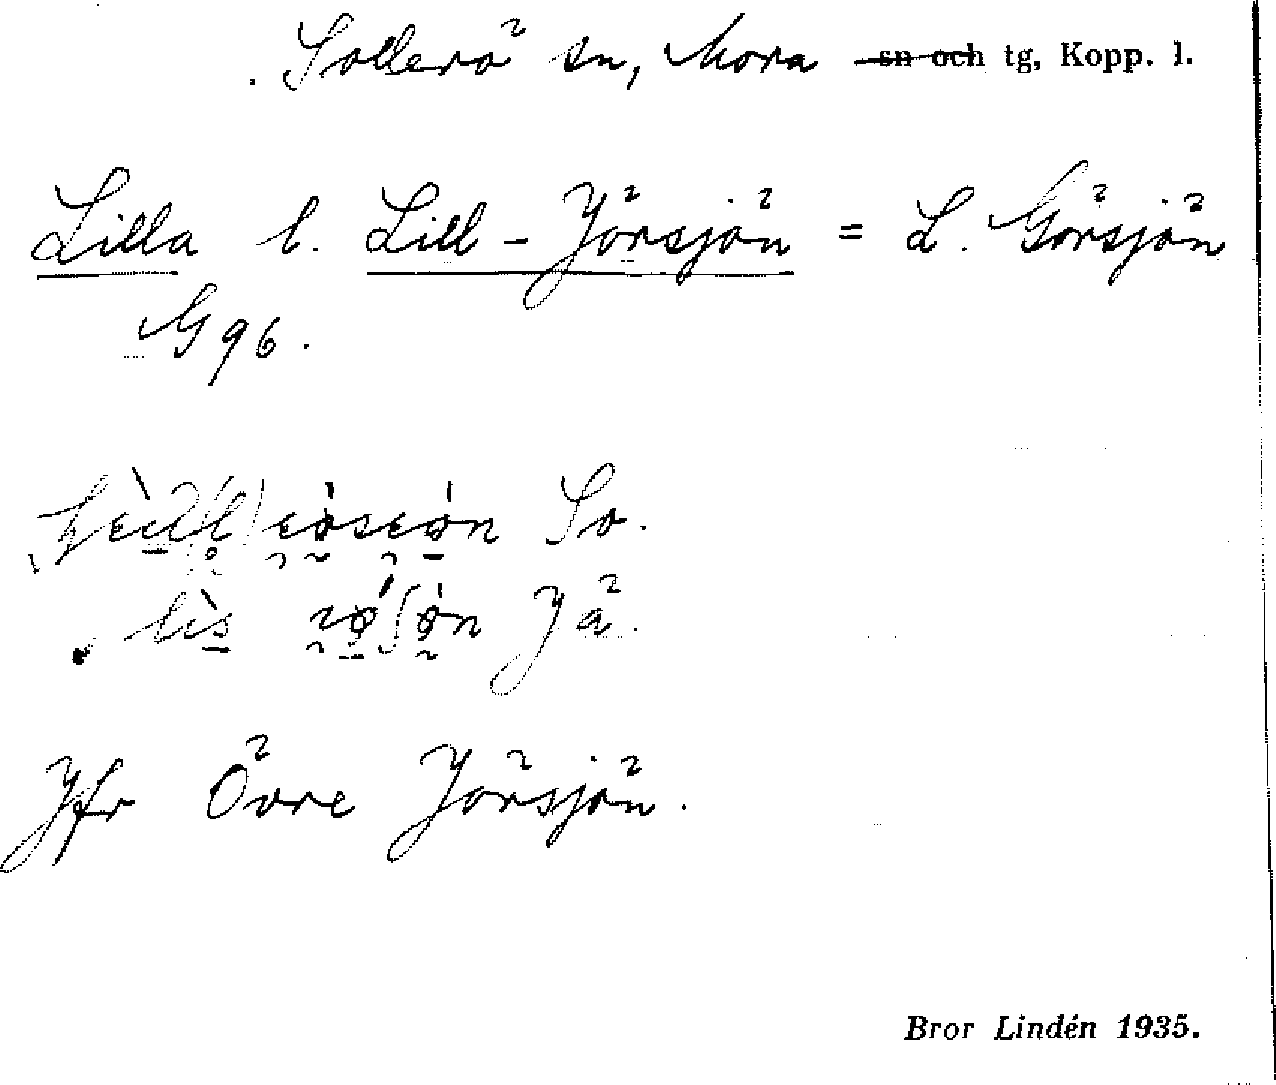 Sollerö sn, Mora sn och tg, Kopp. l.
Lilla l. Lill-Jörsjön = L. Görsjön
G 96.
So.
Jä.
Jfr Övre Jörsjön.
Bror Lindén 1935.